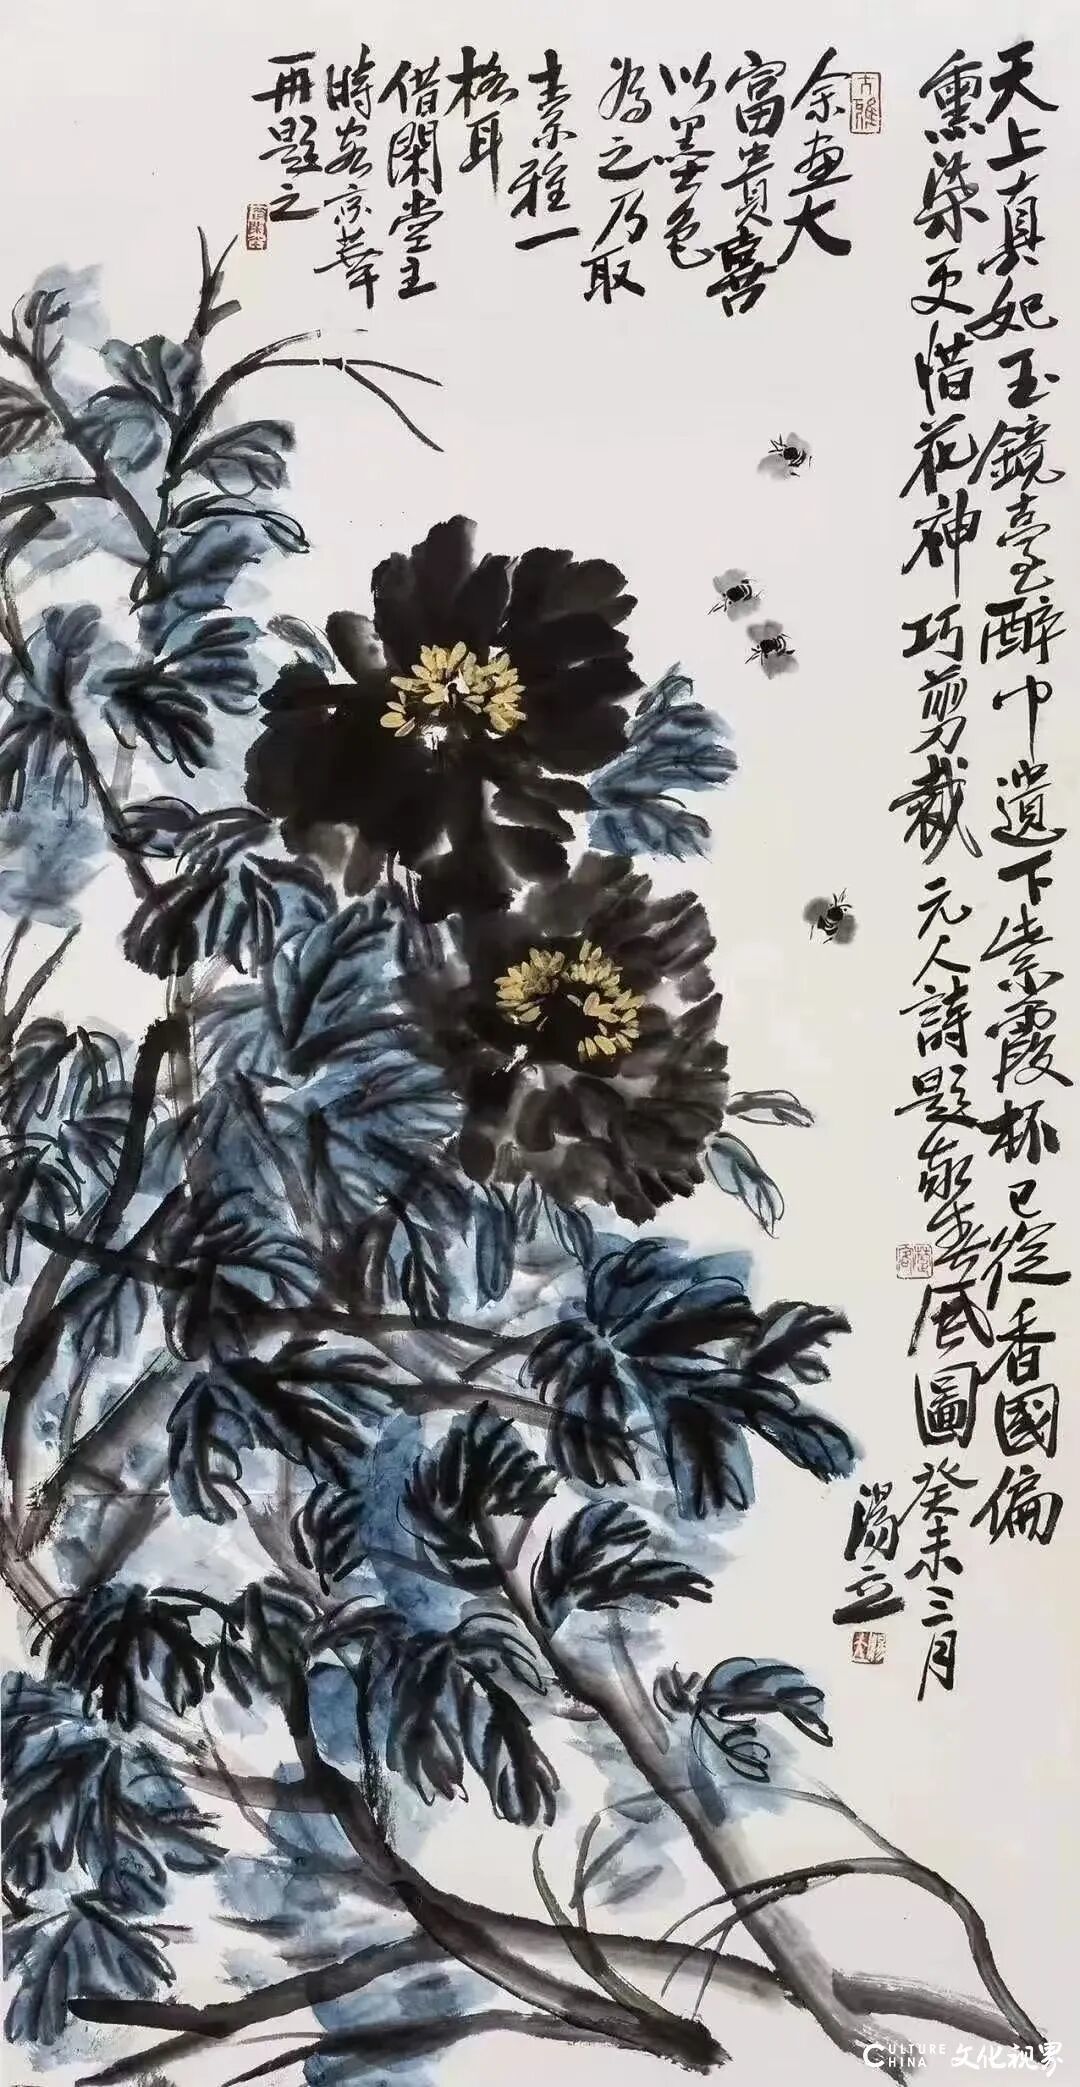 天上真妃玉鏡臺醉中遺下紫霞杯已從香國偏
熏染更惜花神巧剪裁 元人詩題敬春風圖 癸未三月
湯立
大雅
余畫大
富貴喜
以墨色
為之乃取
素雅一
格耳
借閑堂主
時客京華
再題之
CULTURE CHINA 文化视界